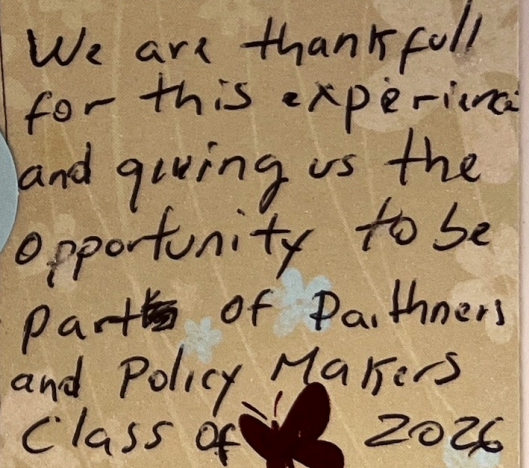 We are thankfull
for this experience
and giving us the
opportunity to be
part of Paithners
and Policy Makers
Class of 2026